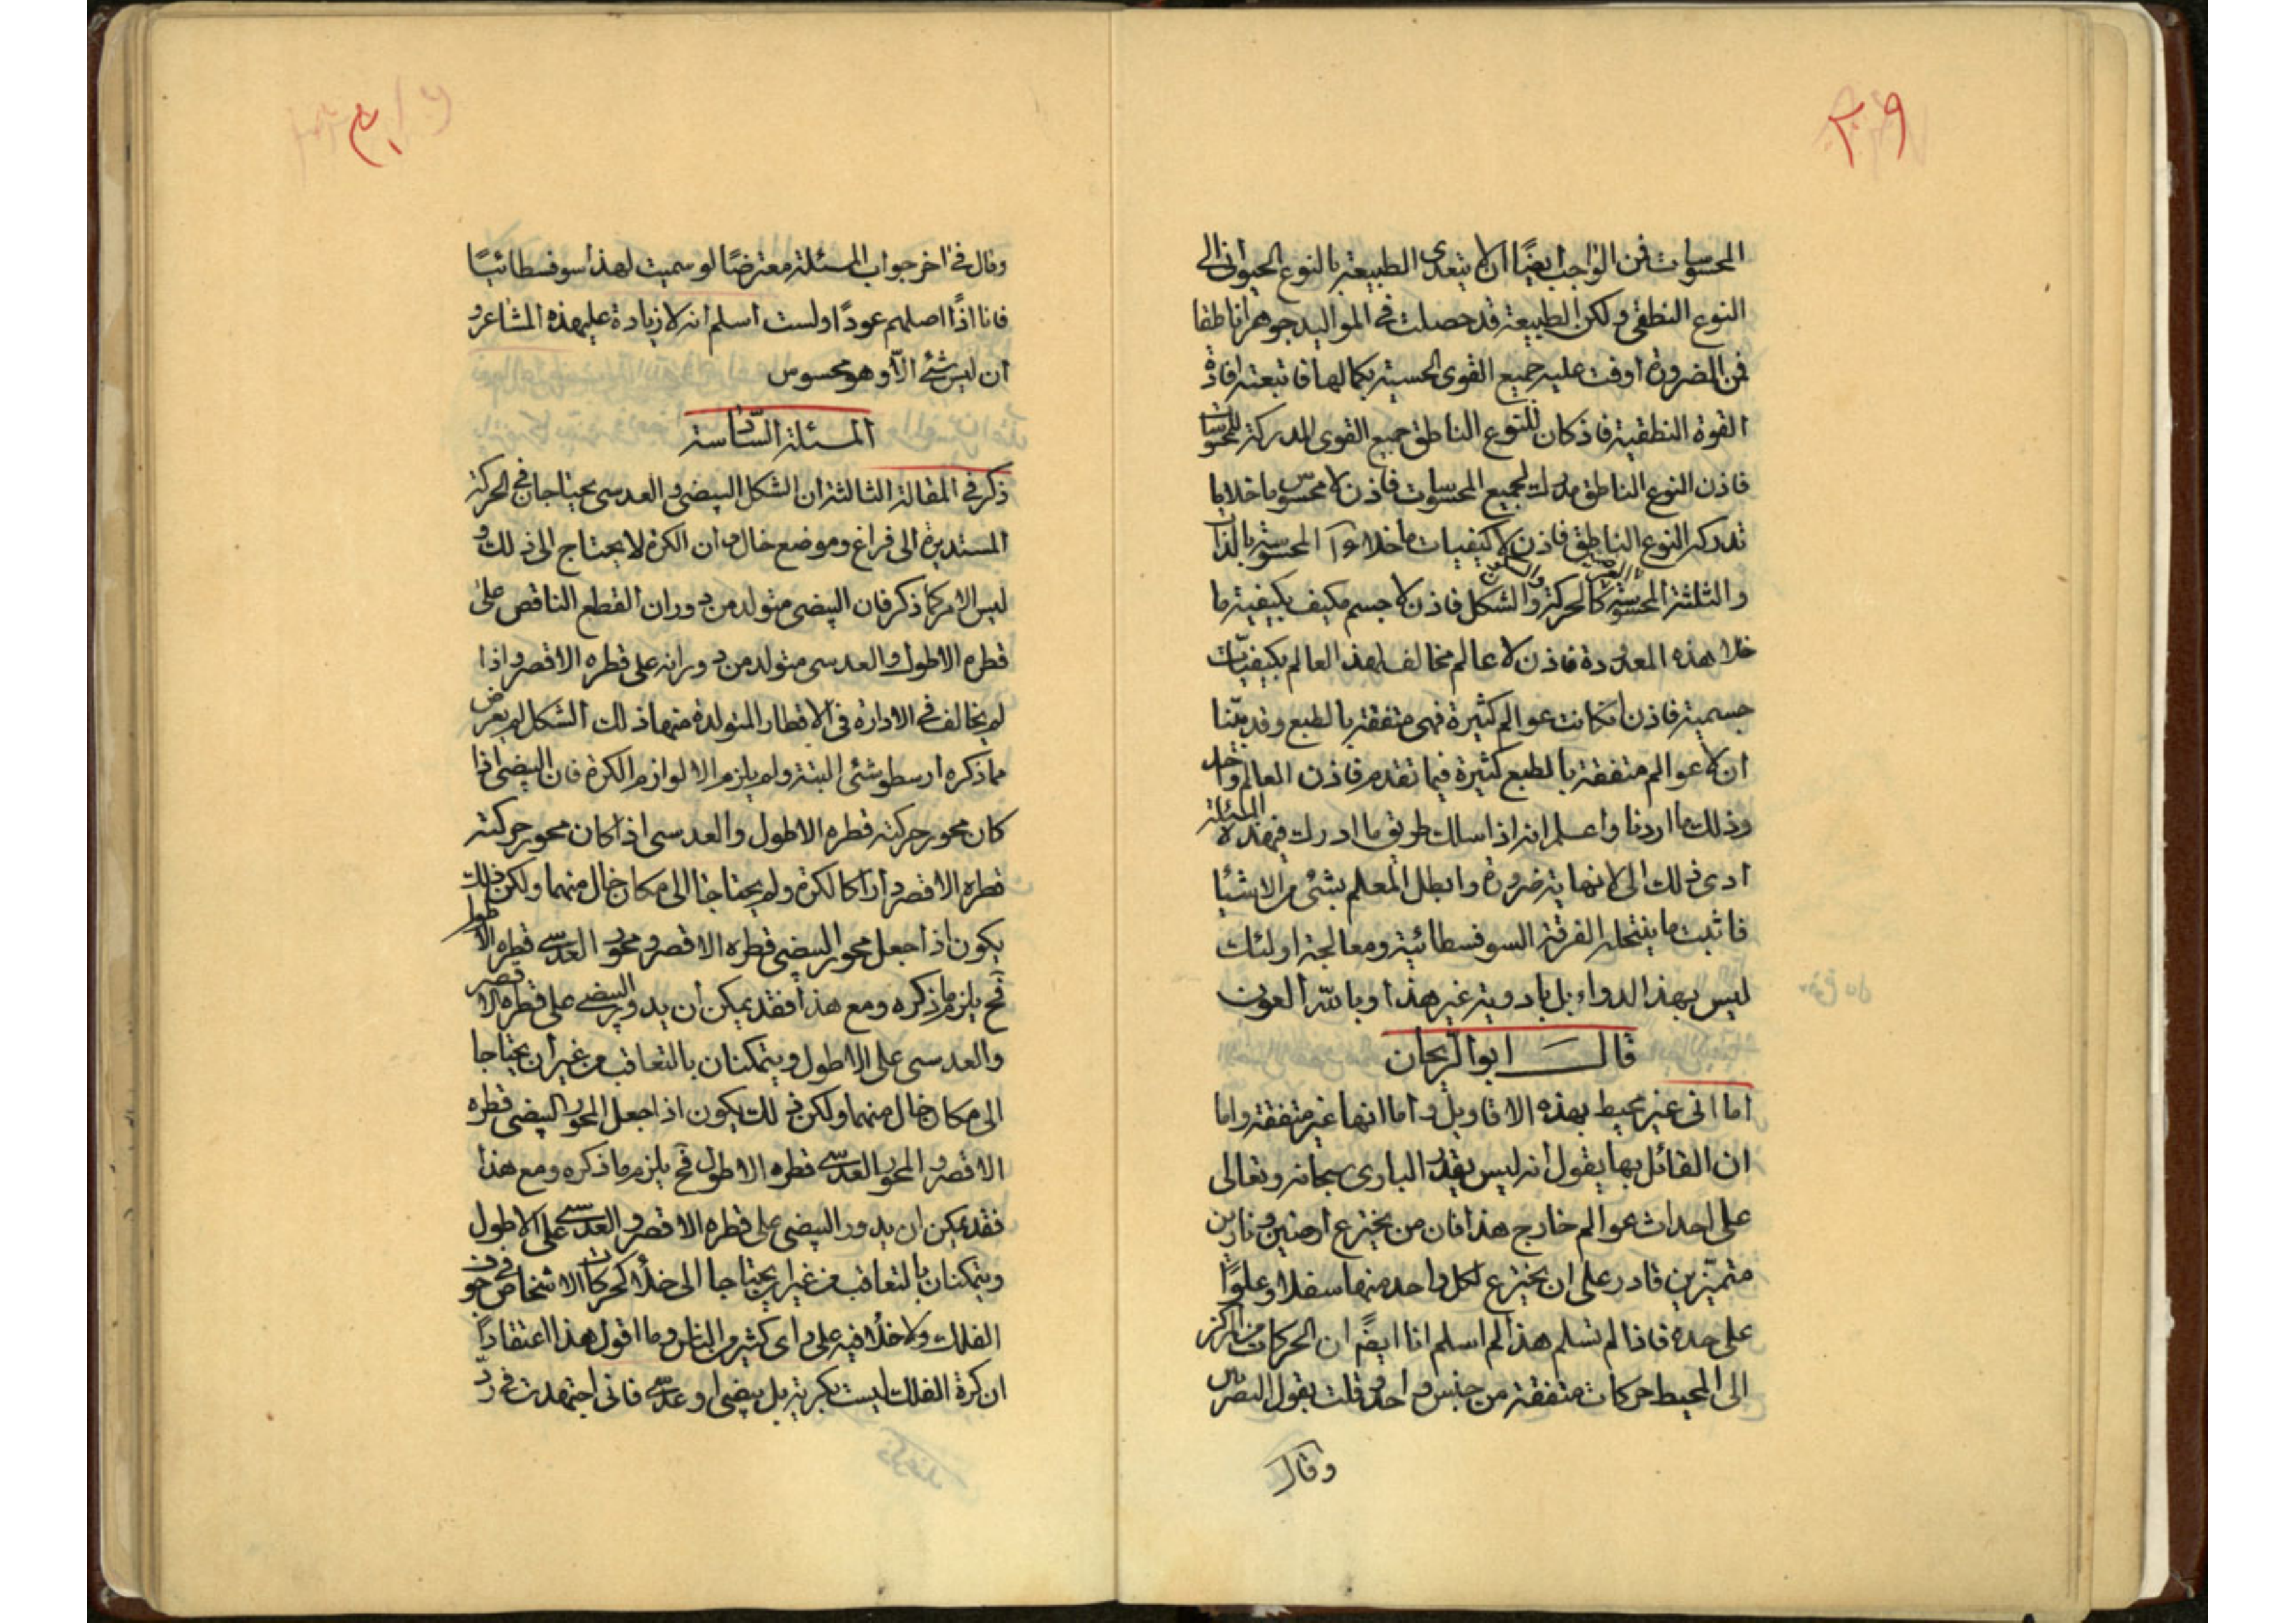 ٢٩
المحسوسات فمن الواجب ايضًا ان لا يتعدى الطبيعة بالنوع الحيوانى الى
النوع النطقى ولكن الطبيعة قد حصلت فى المواليد جوهرا ناطقا
فمن الضرورة اوفت عليه جميع القوى الحسية بكمالها فاتبعته افادة
القوة النطقية فاذ كان للنوع الناطق جميع القوى المدركة للمحسوسات
فاذن النوع الناطق مدرك لجميع المحسوسات فاذن لا محسوس ما خلا ما
تدركه النوع الناطق فاذن لا كيفيات ما خلا المحسوسة بالذات
والثلثة المحسوسة بالعرض كالحركة والسكون والشكل فاذن لا جسم مكيف بكيفية ما
خلا هذه المعدودة فاذن لا عالم مخالف لهذ العالم بكيفيات
جسمية فاذن ان كانت عوالم كثيرة فهى متفقة بالطبع وقد بيّنا
ان لا عوالم متفقة بالطبع كثيرة فيما تقدم فاذن العالم واحد
وذلك ما اردنا واعلم انه اذا سلك طريق ما ادرك فى هذه المسئلة
ادى ذلك الى لا نهاية ضرورة وابطل المعلم بشئ من الاشيا
فاثبت ما ينتحله الفرقة السوفسطائية ومعالجة اولئك
ليس بهذ الدواء بل بادوية غير هذا وبالله العون
قال ابو الريحان
اما انى غير محيط بهذه الاقاويل واما انها غير متفقة واما
ان القائل بها يقول انه ليس يقدر البارى سبحانه وتعالى
على احداث عوالم خارج هذا فان من يخترع ارضين ونارين
متميّزين قادر على ان يخترع لكل واحد منهما سفلا وعلوًا
على حدة فاذا لم تسلم هذا لم اسلم انا ايضًا ان الحركات من المركز
الى المحيط حركات متفقة من جنس واحد وقلت بقول
وقال
٣٠
وقال فى اخر جواب المسئلة معترضًا لو سميت لهذا سوفسطائيًا
فانا اذًا اصلهم عودًا ولست اسلم انه لا زيادة على هذه المشاعر و
ان ليس شئ الّا وهو محسوس
المسئلة السّادسة
ذكر فى المقالة الثالثة ان الشكل البيضى والعدسى يحتاجان فى الحركة
المستديرة الى فراغ وموضع خال وان الكرة لا يحتاج الى ذلك و
ليس الامر كما ذكر فان البيضى متولد من دوران القطع الناقص على
قطره الاطول والعدسى متولد من دورانه على قطره الاقصر واذا
لم يخالف فى الادارة فى الاقطار المتولدة منها ذلك الشكل لم يعرض
مما ذكره ارسطو شئ البتة ولم يلزم الا لوازم الكرة فان البيضى اذا
كان محور حركته قطره الاطول والعدسى اذا كان محور حركته
قطره الاقصر دارا كالكرة ولم يحتاجا الى مكان خال منهما ولكن ذلك
يكون اذا جعل محور البيضى قطره الاقصر ومحور العدسى قطره الاطول
فح يلزم ما ذكره ومع هذا فقد يمكن ان يدور البيضى على قطره الاقصر
والعدسى على الاطول ويتمكنان بالتعاقب من غير ان يحتاجا
الى مكان خال منهما ولكن ذلك يكون اذا جعل المحور البيضى قطره
الاقصر والمحور العدسى قطره الاطول فح يلزم ما ذكره ومع هذا
فقد يمكن ان يدور البيضى على قطره الاقصر والعدسى على الاطول
ويتمكنان بالتعاقب من غير ان يحتاجا الى خلأ لحركات الاشخاص فى جوف
الفلك ولا خلأ فيه على راى كثير من الناس وما اقول هذا اعتقادًا
ان كرة الفلك ليست بكرية بل بيضى او عدسى فانى اجتهدت فى ردّ